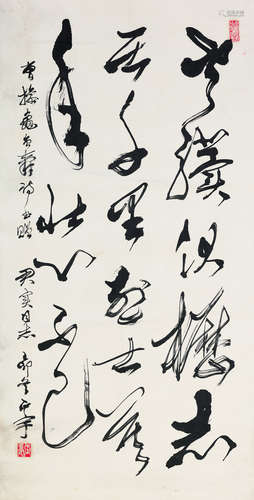 老骥伏枥志
在千里烈士暮
年壮心不已
曹操龟虽寿诗 书赠
君实同志